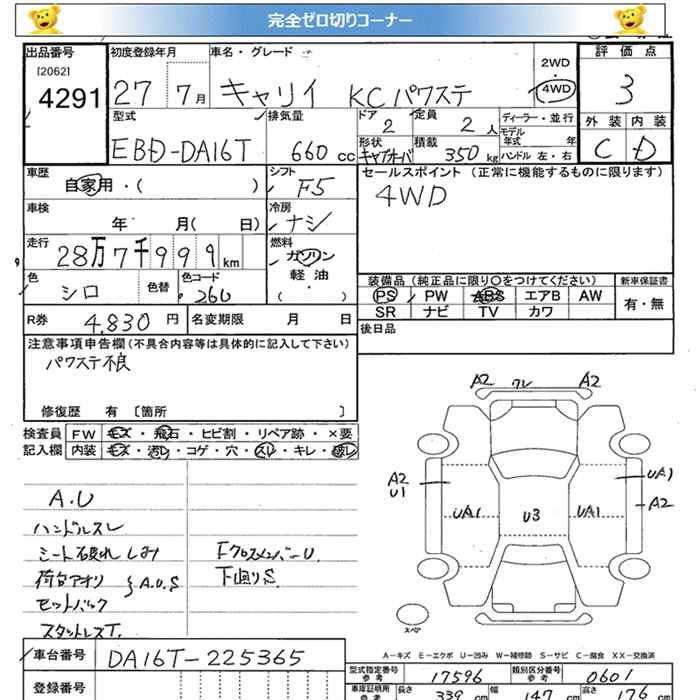 完全ゼロ切りコーナー
出品番号 初度登録年月 車名・グレード 2WD 4WD 評価点
[2062] 4291 27 7月 キャリイ KCパワステ 3
型式 排気量 ドア 定員 ディーラー・並行 外装 内装
EBD-DA16T 660cc 2 2人 モデル年式 年 C D
形状 キャブオーバ 積載 350kg ハンドル 左・右
車歴 シフト セールスポイント (正常に機能するものに限ります)
自家用・( ) F5 4WD
車検 冷房
年 月( 日) ナシ
走行 燃料
28万7千999km ガソリン
軽油
( )
色 色替 色コード 装備品(純正品に限り○をつけてください) 新車保証書
シロ 26U PS PW ABS エアB AW 有・無
SR ナビ TV カワ
R券 4,830円 名変期限 月 日 後日品
注意事項申告欄(不具合内容等は具体的に記入して下さい)
パワステ不良
修復歴 有 [箇所 ]
検査員 FW キズ・飛石・ヒビ割・リペア跡・×要
記入欄 内装 キズ・汚レ・コゲ・穴・スレ・キレ・破レ
A2 ワレ A2
A2
U1
UA1
U3
UA1
UA1
A2
A.U
ハンドルスレ
シート破れ しみ
荷台アオリ } A.U.S
セットバック
スタットレスT.
Fクロスメンバー U.
下廻りS.
スペア
A-キズ E-エクボ U-凹み W-補修跡 S-サビ C-腐食 XX-交換済
車台番号 DA16T-225365
登録番号
型式指定番号 参考 17596 類別区分番号 参考 0601
車庫証明用 参考 長さ 339cm 幅 147cm 高さ 176cm